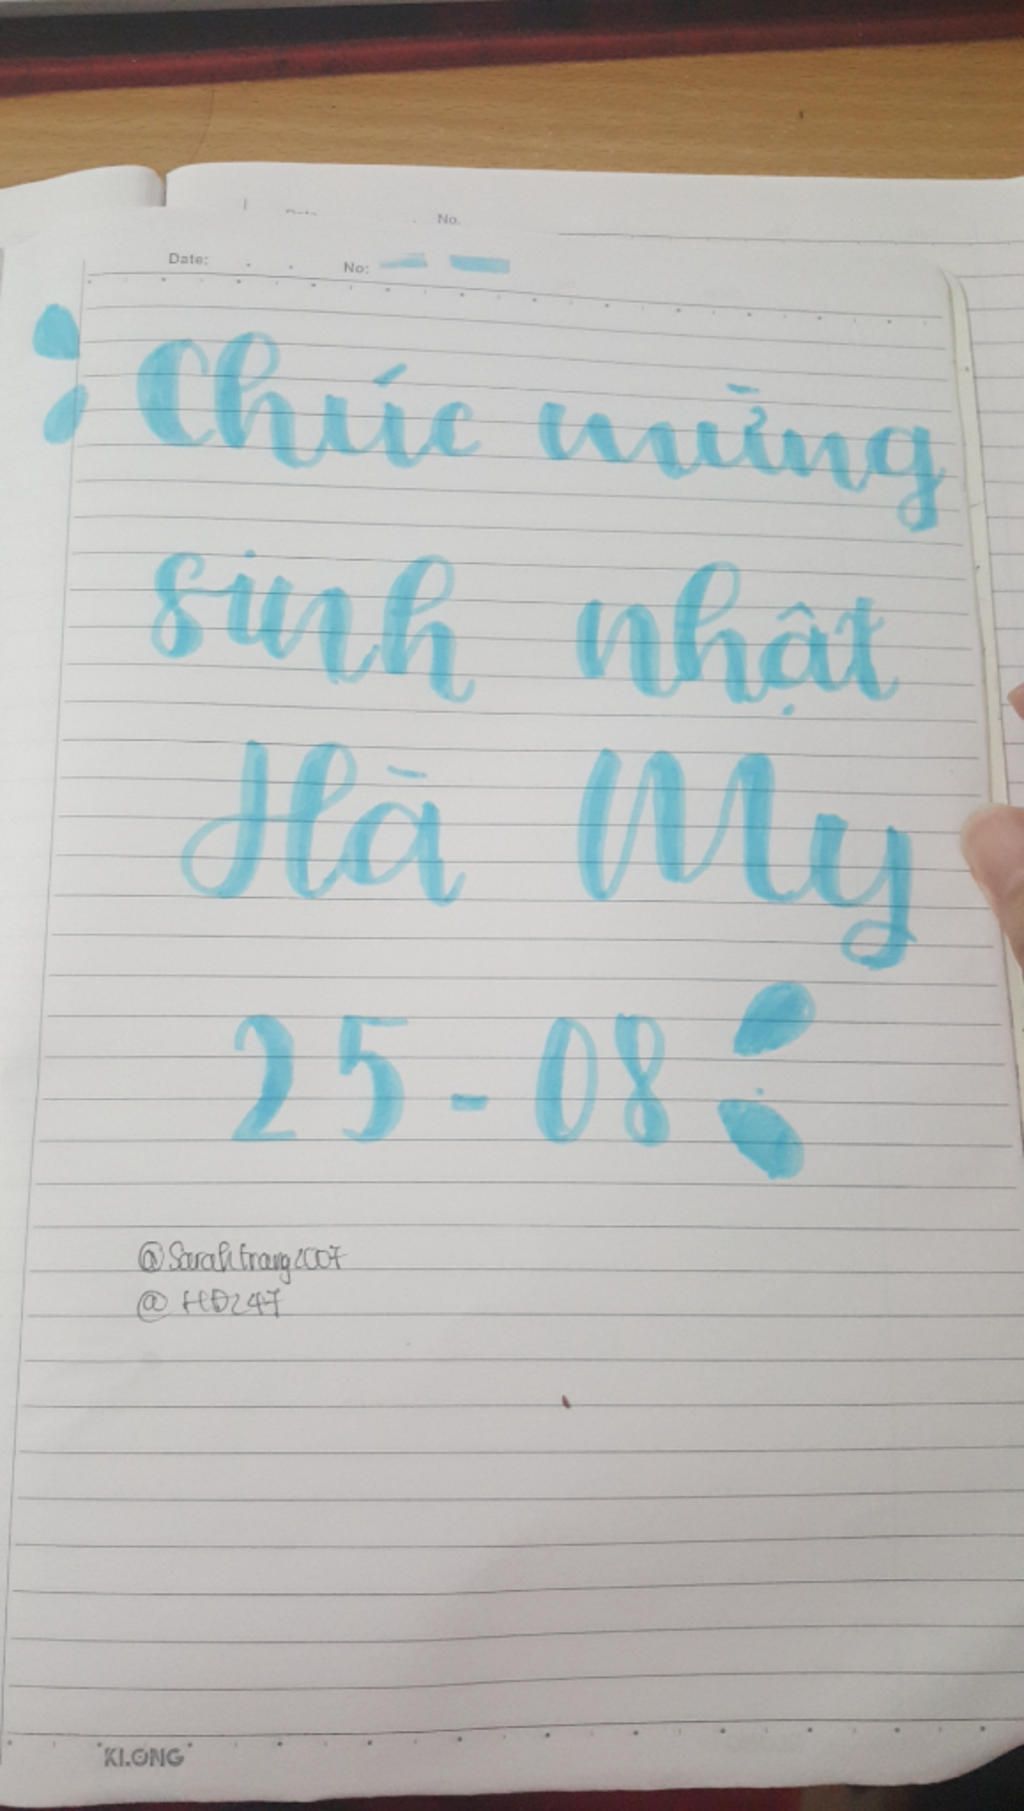 No.
Date: No:
Chúc mừng
sinh nhật
Hà My
25-08
@Sarahtrang2007
@HD247
KLONG